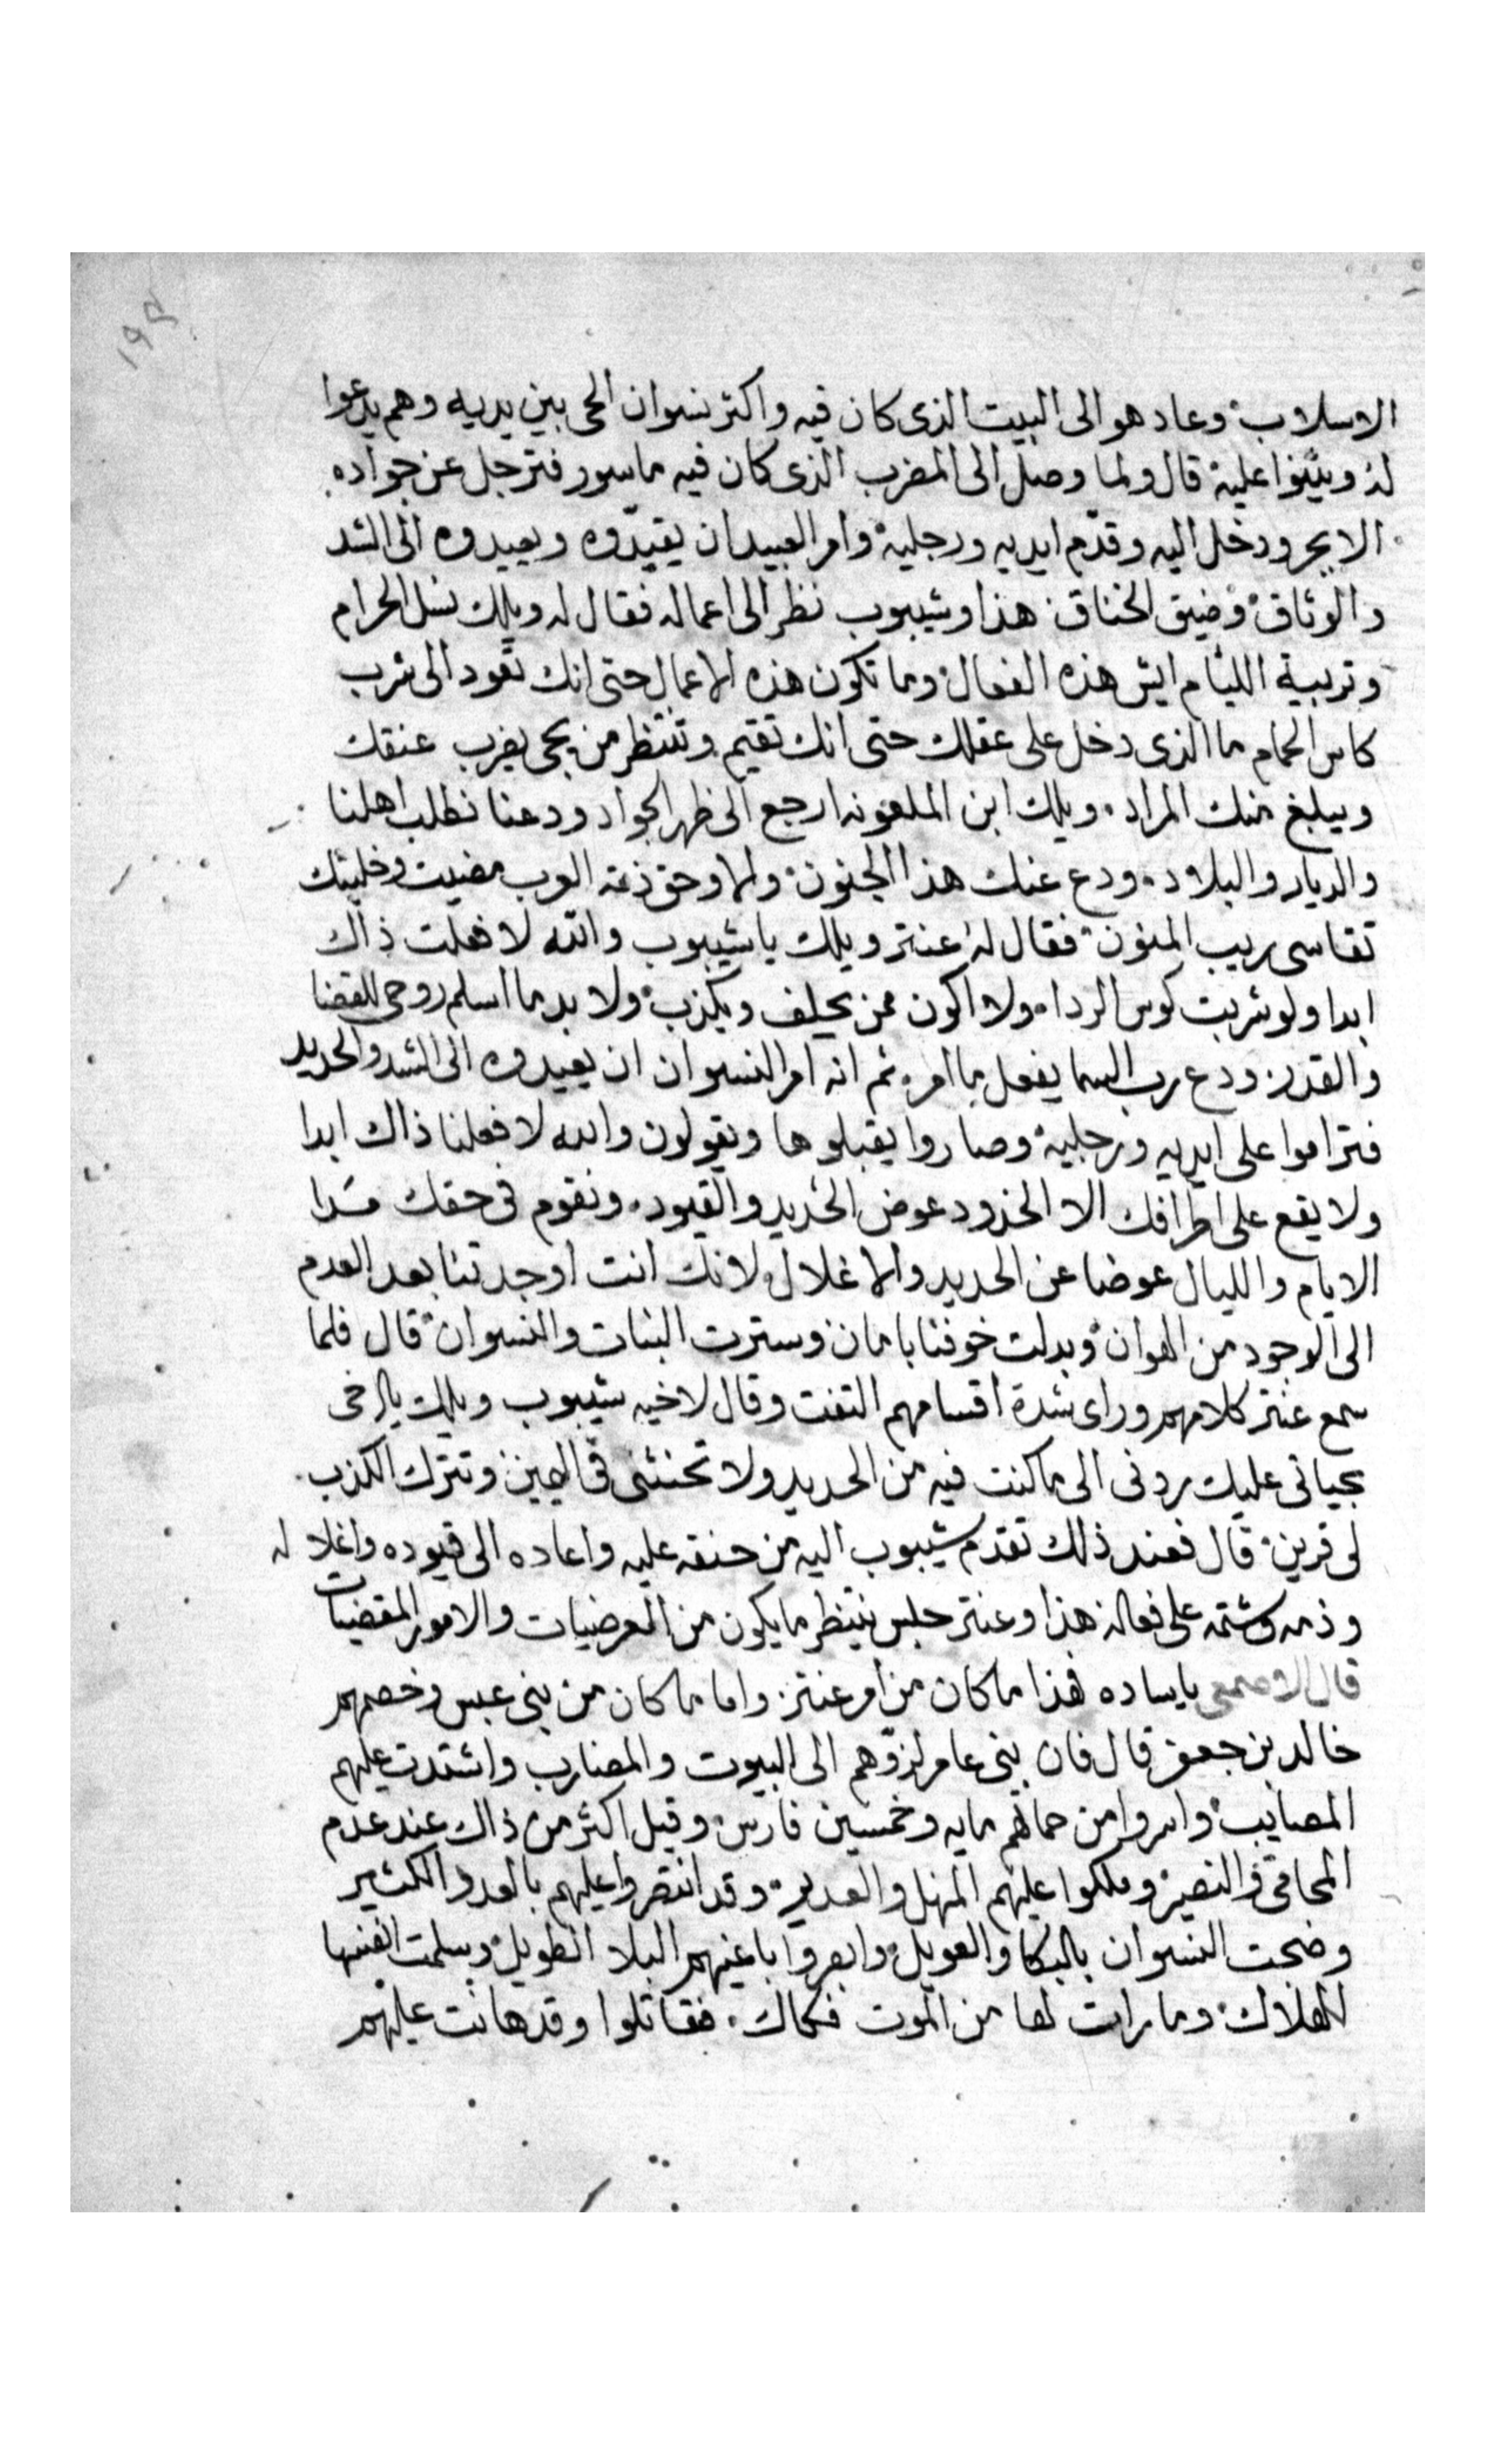 ١٩٢
الاسلاب وعاد هو الى البيت الذى كان فيه واكثر نسوان الحى بين يديه وهم يدعوا
له ويثنوا عليه قال ولما وصل الى المضرب الذى كان فيه ماسور فترجل عن جواده
الابجر ودخل اليه وقدّم ايديه ورجليه وامر العبيد ان يقيّدوه ويعيدوه الى الشد
والوثاق وضيق الخناق هذا وشيبوب نظر الى اعماله فقال له ويلك نسل الحرام
وتربية الليام ايش هذه الفعال وما تكون هذه الاعمال حتى انك تعود الى شرب
كاس الحمام ما الذى دخل على عقلك حتى انك تقيم وتنتظر من يجى يضرب عنقك
ويبلغ منك المراد ويلك ابن الملعونه ارجع الى ظهر الجواد ودعنا نطلب اهلنا
والديار والبلاد ودع عنك هذا الجنون والا وحق ذمة العرب مضيت وخليتك
تقاسى ريب المنون فقال له عنتر ويلك يا شيبوب والله لا فعلت ذاك
ابدا ولو شربت كوس الردا ولا اكون ممن يحلف ويكذب ولا بد ما اسلم روحى للقضا
والقدر ودع رب السما يفعل ما امر ثم انه امر النسوان ان يعيدوه الى الشد والحديد
فتراموا على ايديه ورجليه وصاروا يقبلوها ويقولون والله لا فعلنا ذاك ابدا
ولا يقع على اطرافك الا الخدود عوض الحديد والقيود ونقوم فى حقك مدا
الايام والليال عوضا عن الحديد والاغلال لانك انت اوجدتنا بعد العدم
الى الوجود من الهوان وبدلت خوفنا بامان وسترت البنات والنسوان قال فلما
سمع عنتر كلامهم وراى شدة اقسامهم التفت وقال لاخيه شيبوب ويلك ياخى
بحياتى عليك ردنى الى ما كنت فيه من الحديد ولا تحنثنى فى اليمين وتترك الكذب
لى قرين قال فعند ذلك تقدم شيبوب اليه من حنقه عليه واعاده الى قيوده واغلاله
وذمه وشتمه على فعاله هذا وعنتر جلس ينتظر ما يكون من العرضيات والامور المقضيات
قال الاصمعى ياساده هذا ما كان من امر عنتر واما ما كان من بنى عبس وخصمهم
خالد بن جعفر قال فان بنى عامر لزوهم الى البيوت والمضارب واشتدت عليهم
المصايب واسروا من حماتهم مايه وخمسين فارس وقيل اكثر من ذاك عند عدم
المحامى والنصير وملكوا عليهم المنهل والغدير وقد انتصروا عليهم بالعدد الكثير
وضجت النسوان بالبكا والعويل وابصروا باعينهم البلا الطويل وسلمت انفسها
للهلاك وما رات لها من الموت فكاك فقاتلوا وقد هانت عليهم